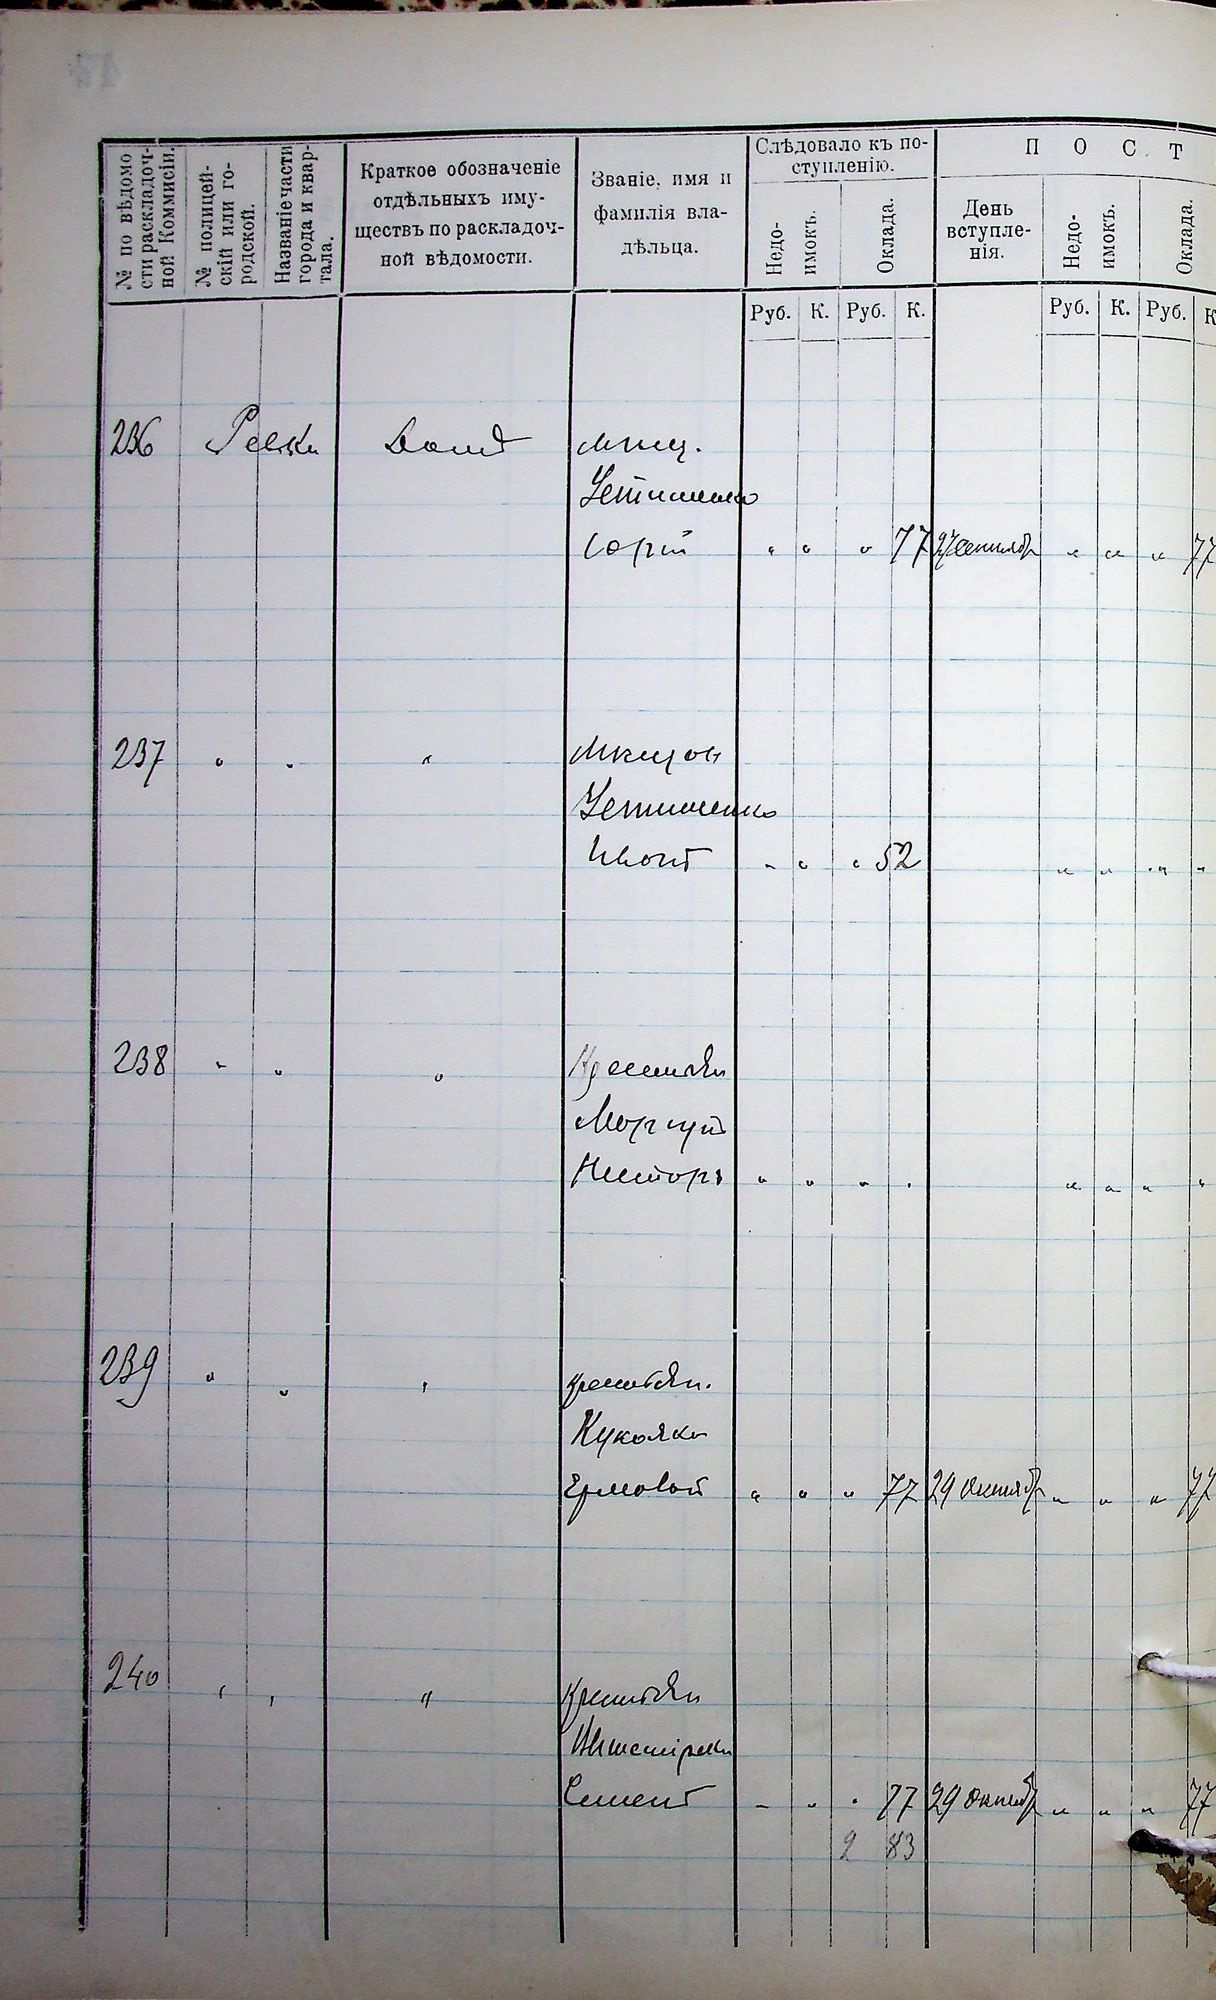 № по вѣдомо
сти раскладоч-
ной Коммисіи.
№ полицей-
скій или го-
родской.
Названіе части
города и квар-
тала.
Краткое обозначеніе
отдѣльныхъ иму-
ществъ по раскладоч-
ной вѣдомости.
Званіе, имя и
фамилія вла-
дѣльца.
Слѣдовало къ по-
ступленію.
Недо-
имокъ.
Оклада.
П О С Т
День
вступле-
нія.
Недо-
имокъ.
Оклада.
Руб. К. Руб. К. Руб. К. Руб. К
236 Домъ мѣщ.
Устименко
" " " 77 27 Сентябр " " " 77
237 " " " Мѣщан
Устименко
Иванъ " " " 52 " " " "
238 " " " Крестьян
Несторъ " " " " " " " "
239 " " " Крестьян.
" " " 77 29 Октябр " " " 77
240 " " " Крестьян
Семенъ " " " 77 29 Октябр " " " 77
2 83